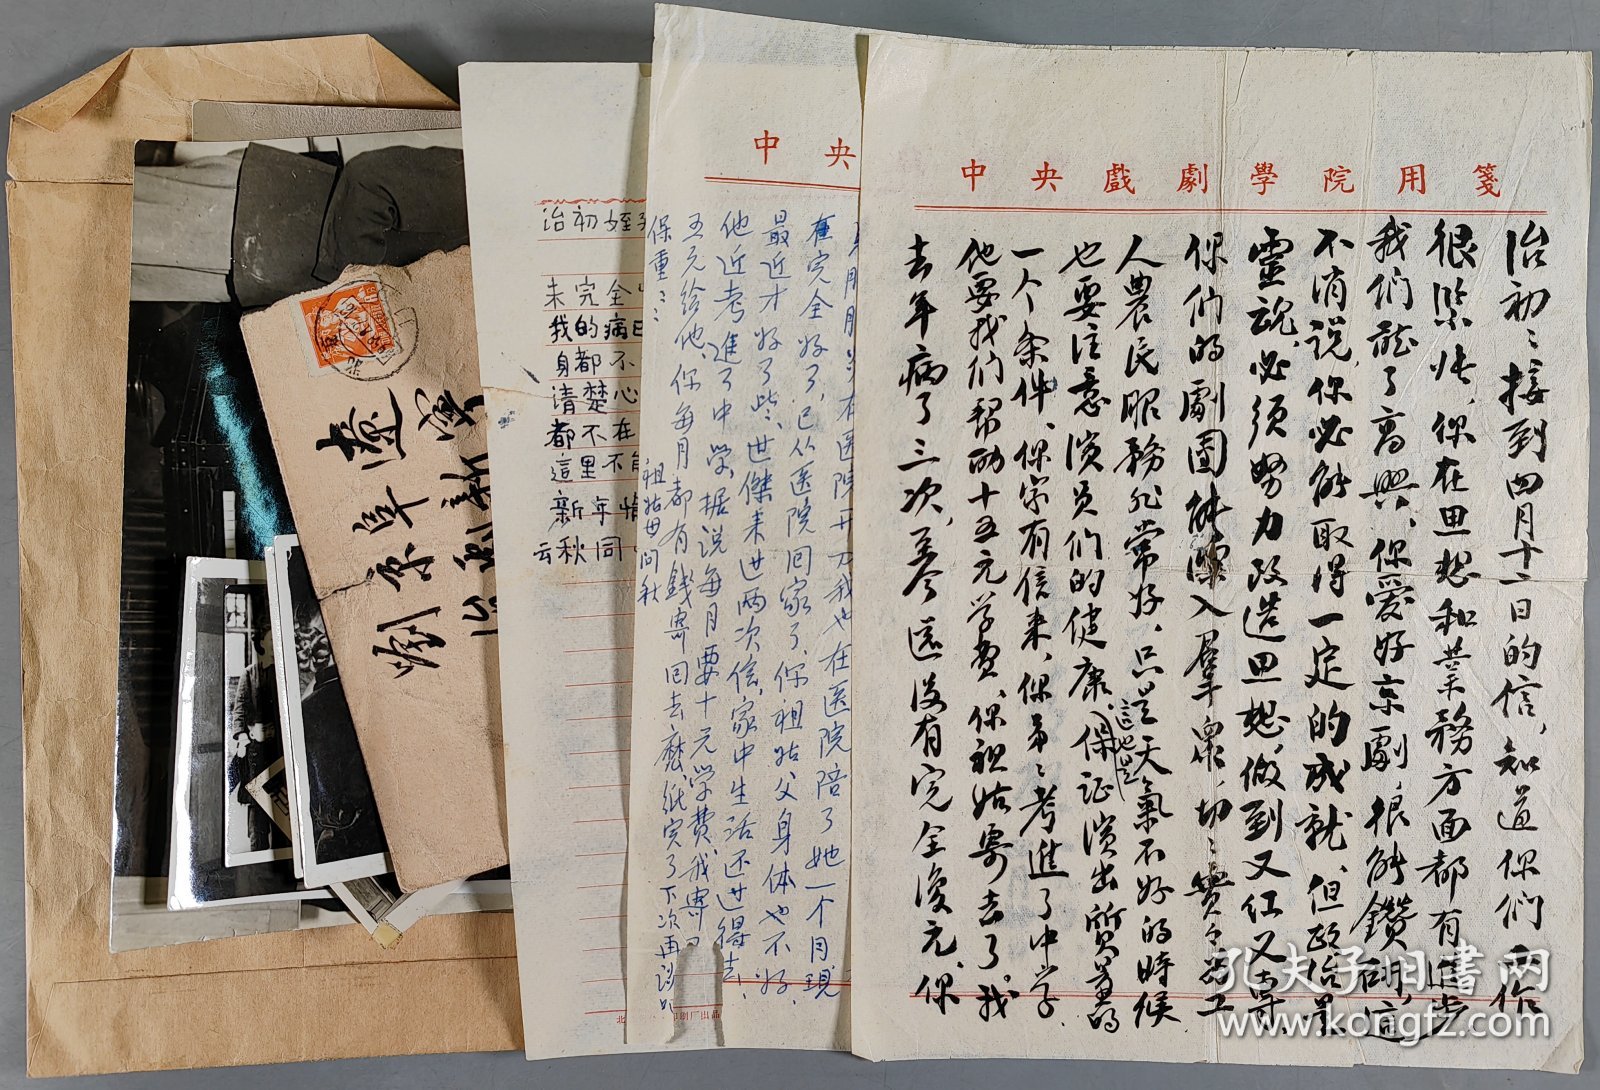 中央戲劇學院用箋
治初：接到四月十一日的信，知道你们工作
很紧张，你在思想和業務方面都有進步
我们听了高興，你愛好京劇，很能鑽研，這
不消说，你必能取得一定的成就，但政治是
靈魂，必须努力改造思想，做到又红又專，
你们的劇團能深入羣衆，切：實：为工
人農民服務非常好，只是天氣不好的時候
也要注意演员们的健康，這也是保证演出質量的
一个条件，你家有信来，你弟：考進了中学
他要我们帮助十五元学费，你祖姑寄去了，我
去年病了三次，至今還没有完全復元，你
中央
在完全好了，已从医院回家了，你祖姑父身体也不好，
最近才好了些，世傑来过两次信，家中生活还过得去，
他近考進了中学，据说每月要十元学费，我寄
五元给他，你每月都有錢寄回去麽，纸完了下次再谈吧
保重：：
祖姑母问秋
治初姪
未完全
我的病已
身都不
清楚心
都不在
這里不能
新年
云秋同
遼寧
阜新
劉
孔夫子旧书网
www.kongfz.com